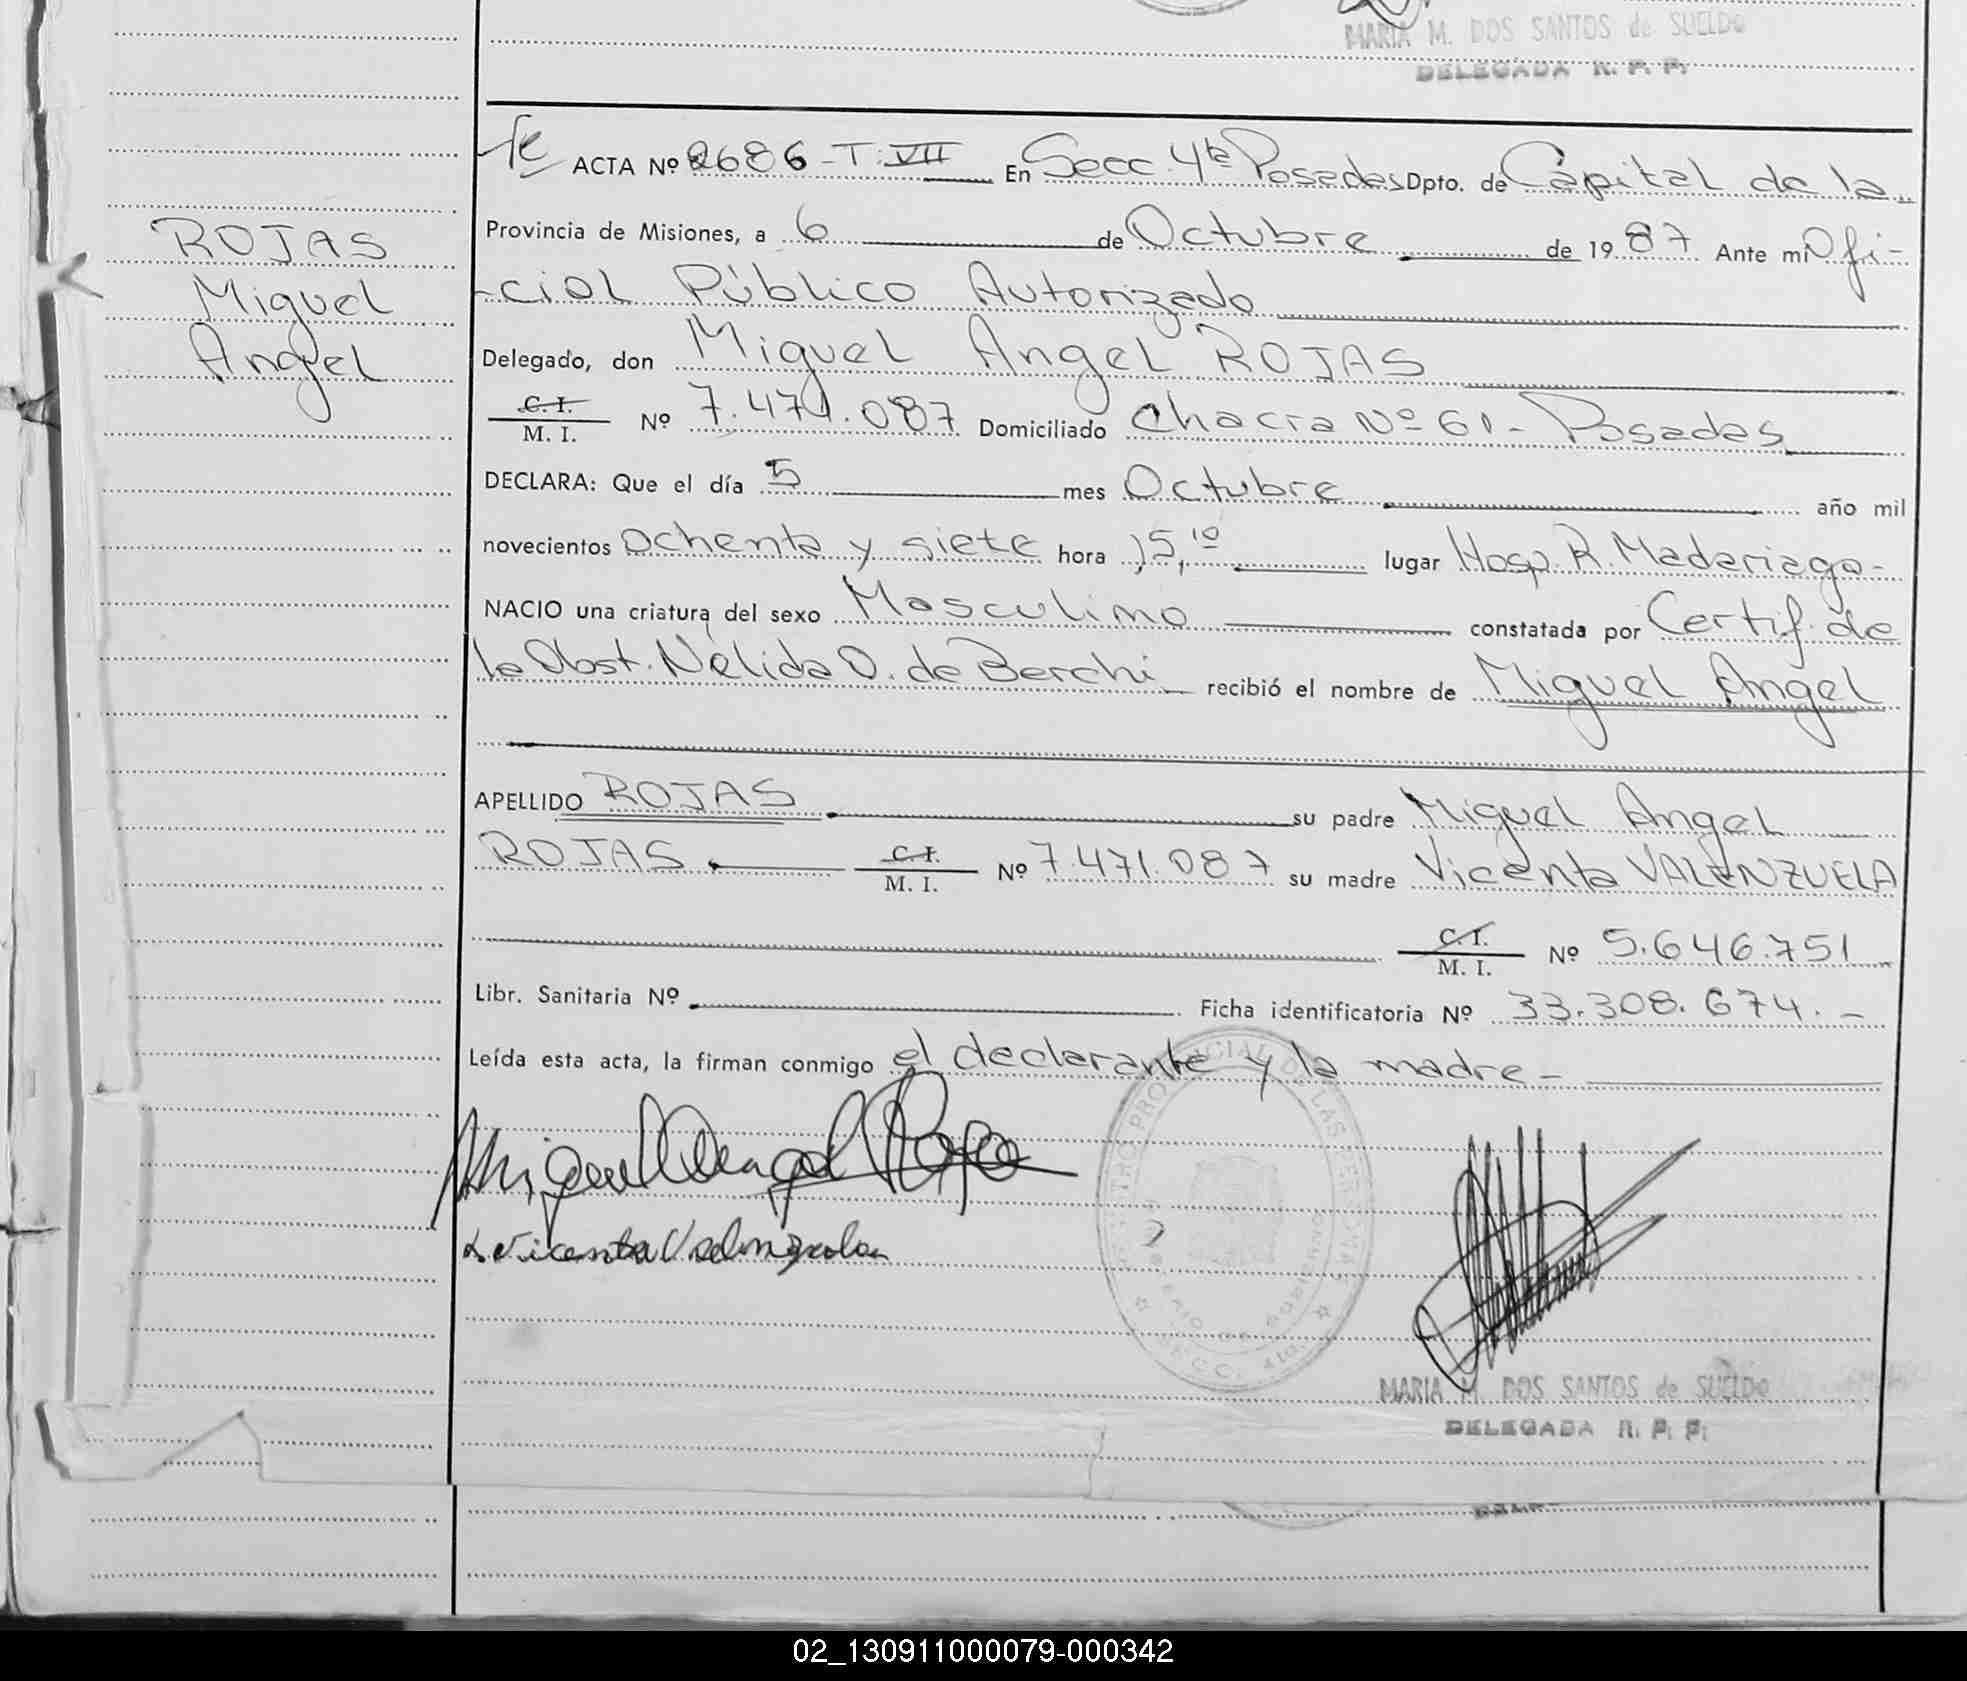 MARIA M. DOS SANTOS de SUELDO
DELEGADA R. P. P.
ROJAS
Miguel
Angel
ACTA Nº 2686-T:VII En Secc. 4ta Posadas Dpto. de Capital de la
Provincia de Misiones, a 6 de Octubre de 1987 Ante mi Ofi-
-cial Público Autorizado
Delegado, don Miguel Angel ROJAS
C. I.
M. I. Nº 7.471.087 Domiciliado Chacra Nº 61 - Posadas
DECLARA: Que el día 5 mes Octubre año mil
novecientos ochenta y siete hora 15,10 lugar Hosp. R. Madariaga-
NACIO una criatura del sexo Masculino constatada por Certif. de
la Obst. Nélida O. de Berchi recibió el nombre de Miguel Angel
APELLIDO ROJAS su padre Miguel Angel
ROJAS C. I. M. I. Nº 7.471.087 su madre Vicenta VALENZUELA
C. I.
M. I. Nº 5.646.751
Libr. Sanitaria Nº Ficha identificatoria Nº 33.308.674.-
Leída esta acta, la firman conmigo el declarante y la madre-
Miguel Angel Rojas
Vicenta Valenzuela
REGISTRO PROVINCIAL DE LAS PERSONAS
SECC. 4ta.
MARIA M. DOS SANTOS de SUELDO
DELEGADA R. P. P.
02_130911000079-000342